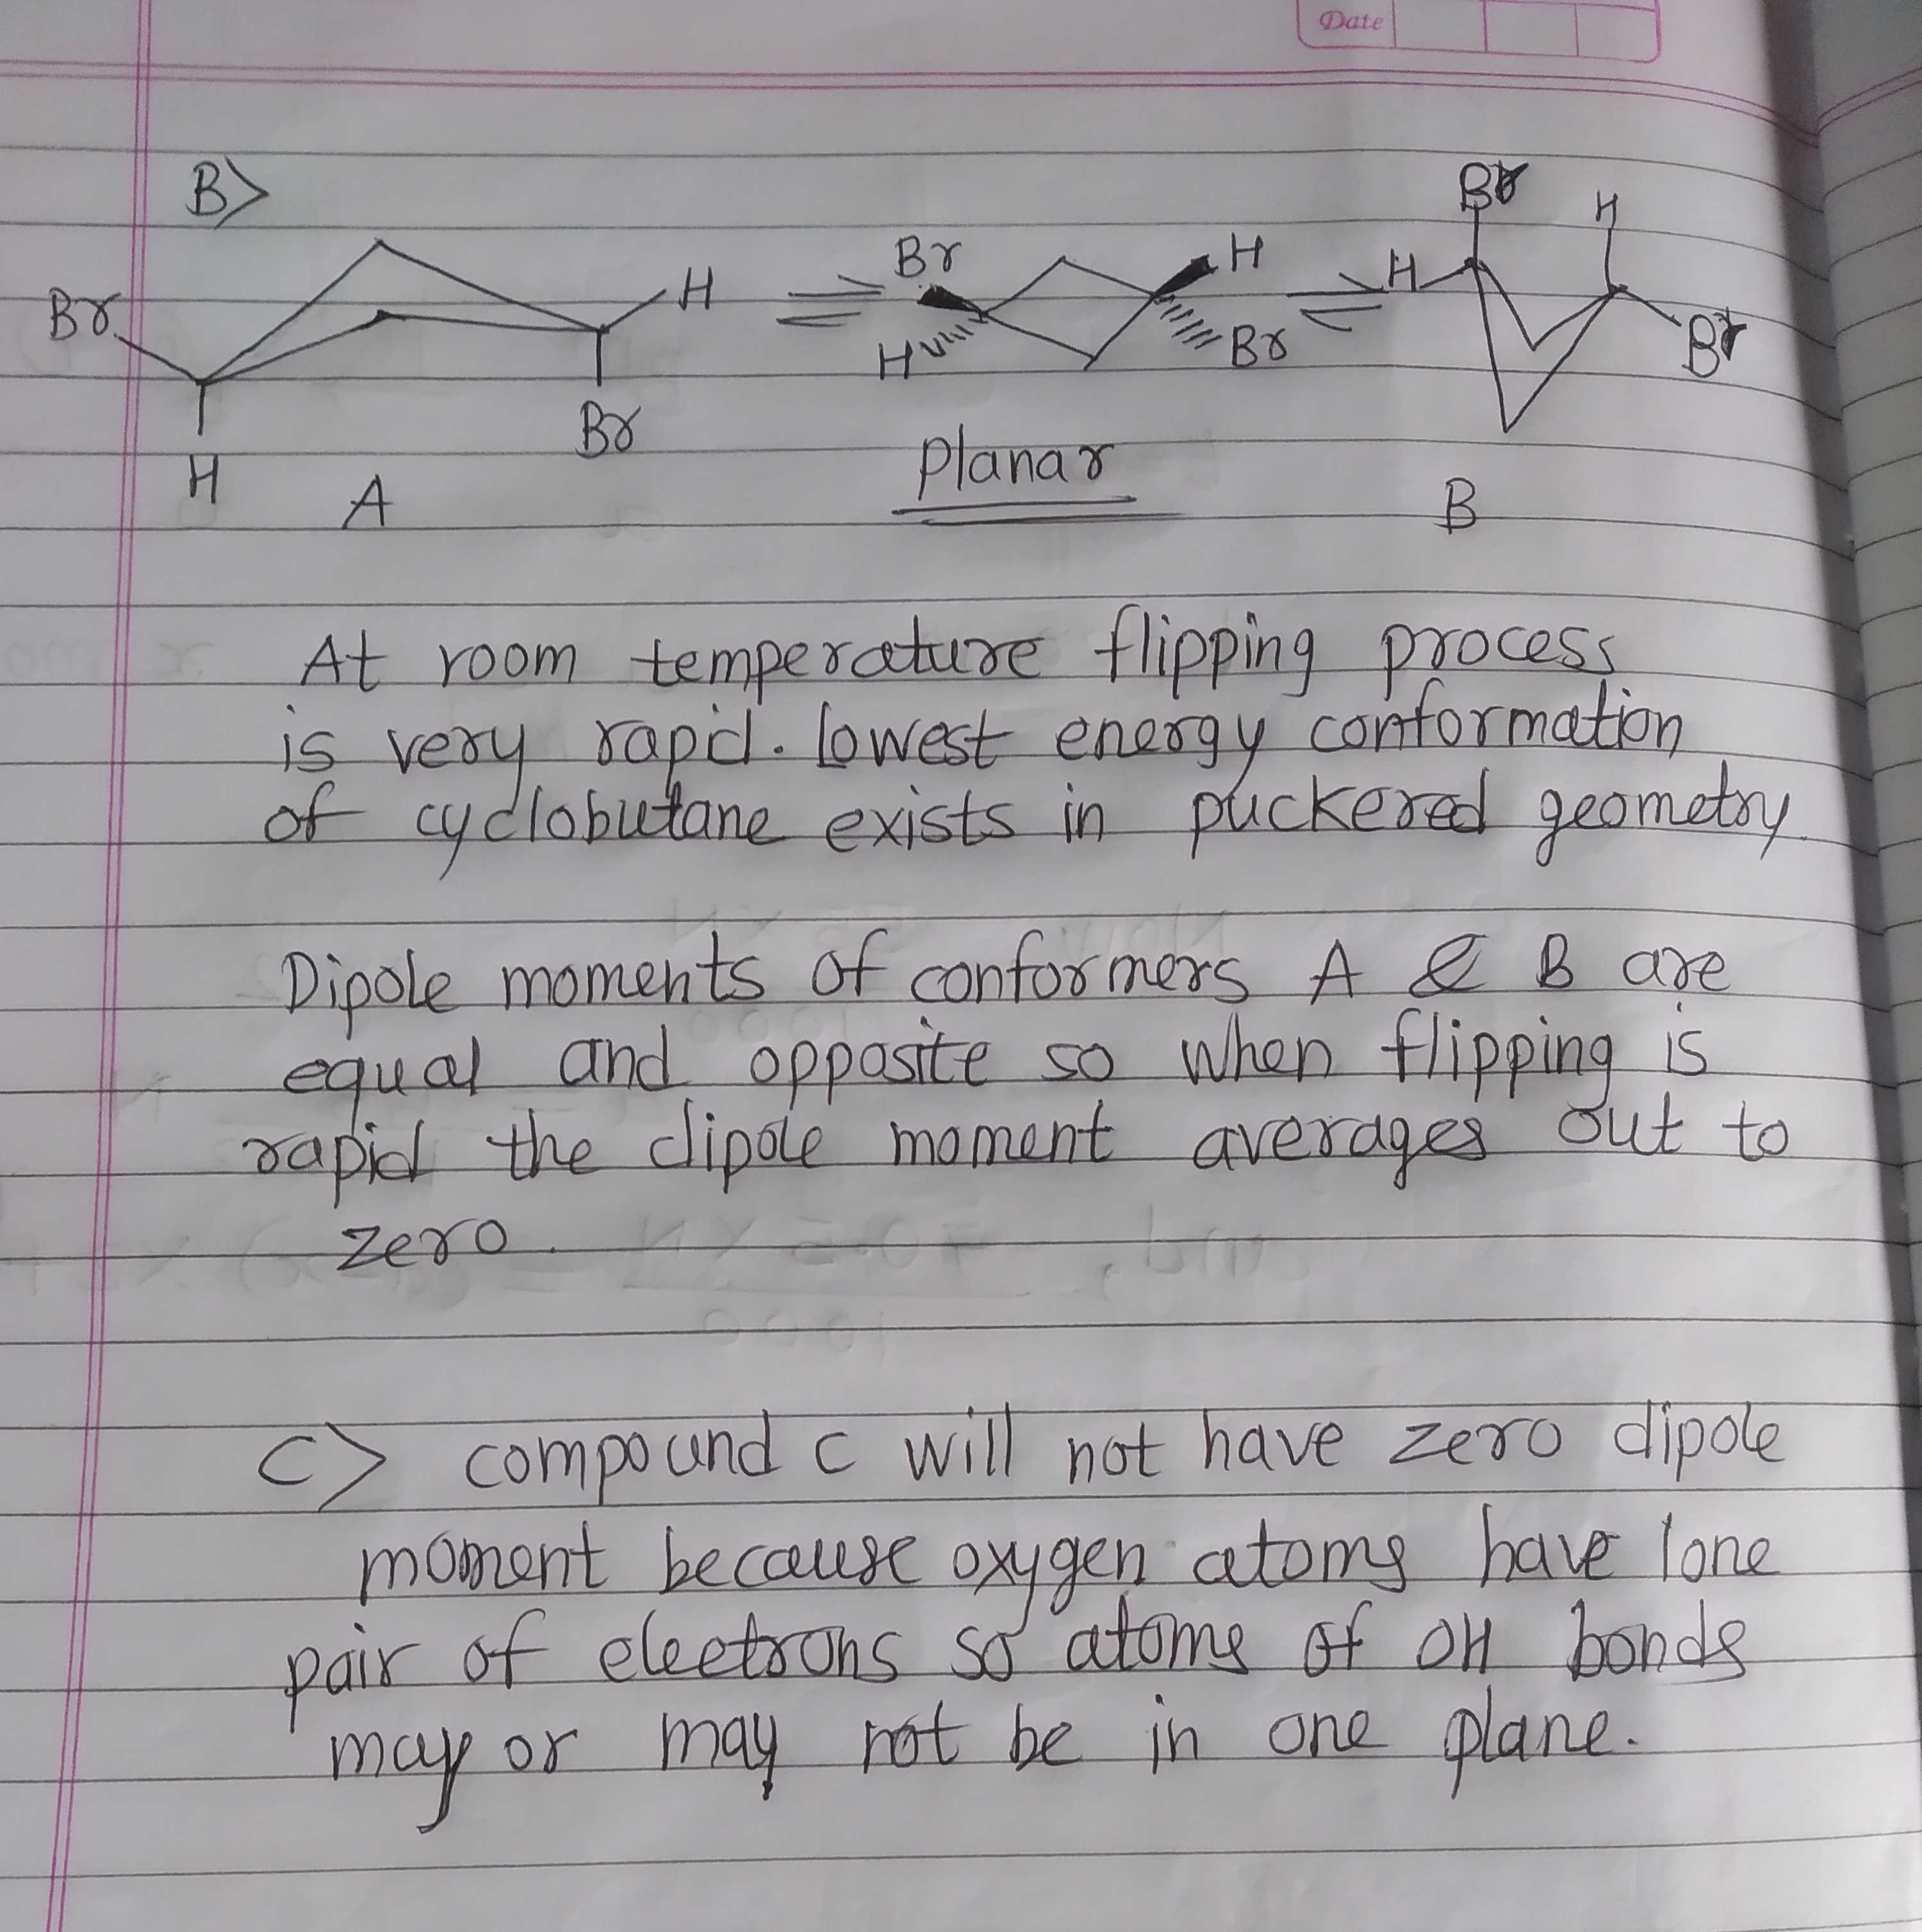 Date
B>
Br H Br H H Br H
H Br H Br Br
Planar
A B
At room temperature flipping process
is very rapid. lowest energy conformation
of cyclobutane exists in puckered geometry.
Dipole moments of conformers A & B are
equal and opposite so when flipping is
rapid the dipole moment averages out to
zero.
C> compound c will not have zero dipole
moment because oxygen atoms have lone
pair of electrons so atoms of OH bonds
may or may not be in one plane.